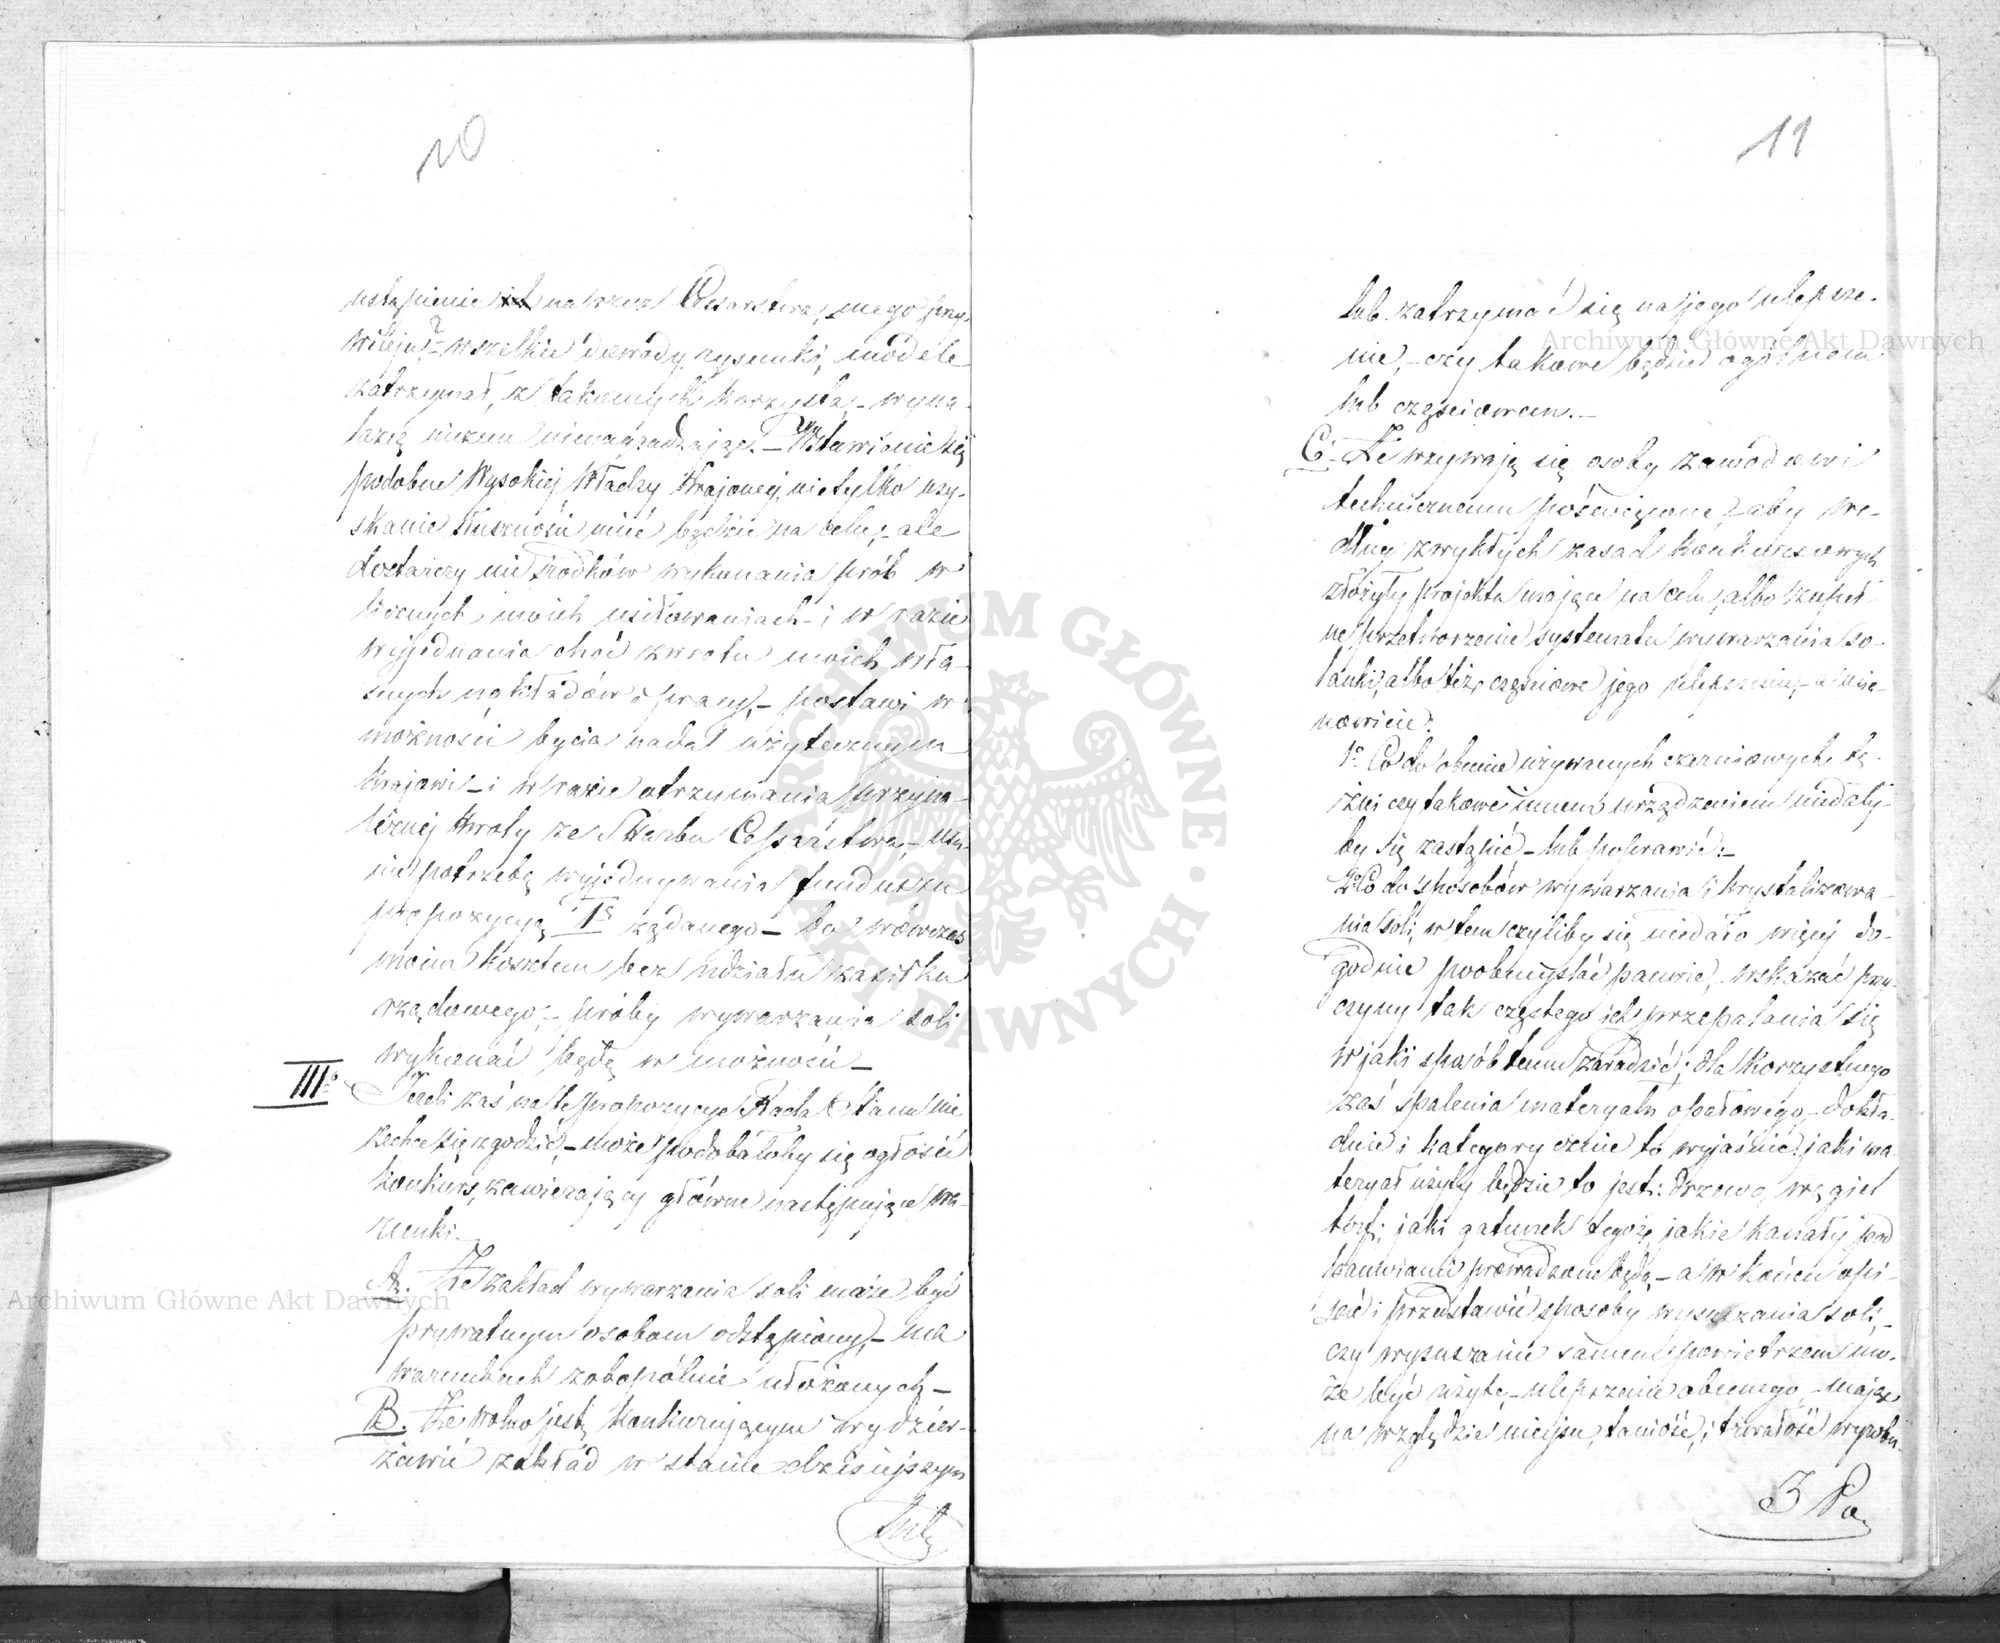 10
ustąpienie na rzecz Cesarstwa, mego przy-
wileju?- wszelkie dowody, rysunki, modele
zatrzymał, z takowych korzysta,- wyna-
lazcę niczem niewynagradzając.- Wstawienie się
podobne Wysokiej Władzy Krajowej, nietylko uzy-
skanie słuszności mieć będzie na celu,- ale
dostarczy mi środków wykonania prób w
licznych moich usiłowaniach- i w razie
wyjednania choć zwrotu moich wła-
snych nakładów i pracy,- postawi w
możności bycia nadal użytecznym
krajowi- i w razie otrzymania przyna-
leżnej kwoty ze Skarbu Cesarstwa,- usu-
nie potrzebę wyjednywania funduszu
propozycyą I żądanego- bo wówczas
moim kosztem bez udziału zasiłku
rządowego,- próby wywarzania soli
wykonać będę w możności-
III° Jeżeli zaś na te propozycye Rada Stanu nie
zechce się zgodzić,- może podobałoby się ogłosić
konkurs, zawierający główne następujące wa-
runki.
A. Że zakład wywarzania soli może być
prywatnym osobom odstąpiony,- na
warunkach zobopólnie ułożonych-
B. Że wolno jest konkurującym wydzier-
żawić zakład w stanie dzisiejszym
lub
11
lub zatrzymać się na jego ulepsze-
nie,- czy takowe będzie ogólnem
lub częściowem.-
C. Że wzywają się osoby zawodowi
technicznemu poświęcone,- aby we-
dług zwykłych zasad konkursowych
złożyły projekta mające na celu, albo zupeł-
ne przetworzenie systematu wywarzania so-
lanki, albo też częściowe jego ulepszenie,- a mia-
nowicie:
1° Co do obecnie używanych cierniowych tę-
żni czy takowe innem urządzeniem niedały-
by się zastąpić,- lub poprawić:-
2° Co do sposobów wywarzania i krystalizowa-
nia soli, w tem czyliby się niedało więcej do-
godnie poobmyślać panwie,- wskazać przy-
czyny tak częstego ich przepalania się
w jaki sposób temu zaradzić; dla korzystnego
zaś spalenia materyału opałowego,- dokła-
dnie i kategorycznie to wyjaśnić: jaki ma
teryał użyty będzie to jest: drzewo, węgiel
torf; jaki gatunek tegoż, jakie kanały pod
panwiami prowadzone będą,- a w końcu opi-
sać i przedstawić sposoby wysuszania soli,-
czy wysuszanie samem powietrzem mo-
że być użyte,- ulepszenie obecnego,- mając
na względzie miejsce, taniość, i trwałość wyrobu.
3 Po
Archiwum Główne Akt Dawnych
Archiwum Główne Akt Dawnych
ARCHIWUM GŁÓWNE AKT DAWNYCH